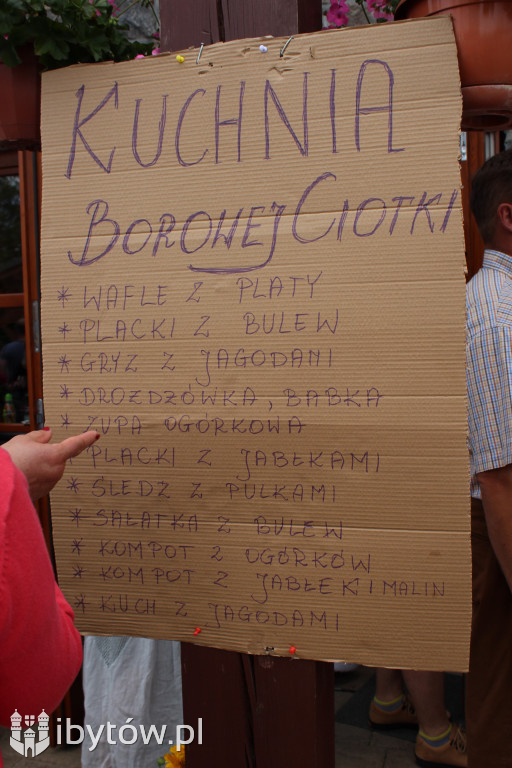 KUCHNIA
BOROWEJ CIOTKI
* WAFLE Z PLATY
* PLACKI Z BULEW
* GRYZ Z JAGODANI
* DROZDZÓWKA, BABKA
* ZUPA OGÓRKOWA
* PLACKI Z JABŁKAMI
* ŚLEDZ Z PULKAMI
* SAŁATKA Z BULEW
* KOMPOT Z OGÓRKÓW
* KOMPOT Z JABŁEK I MALIN
* KUCH Z JAGODAMI
ibytów.pl